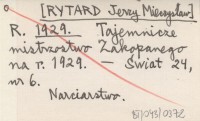 [RYTARD Jerzy Mieczysław]
R. 1929. Tajemnicze
mistrzostwo Zakopanego
na r. 1929. — Świat 24,
nr 6.
Narciarstwo.